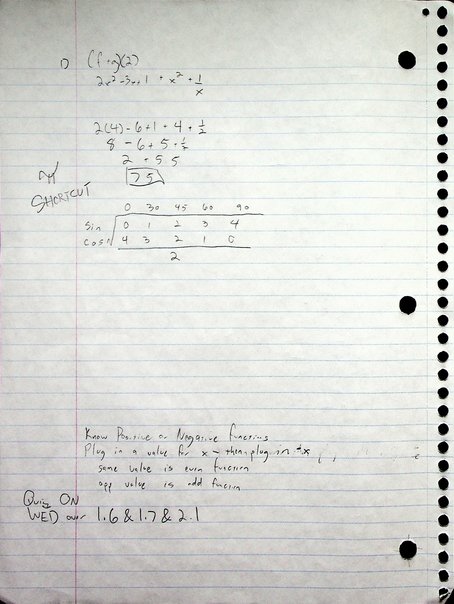 1) (f+g)(2)
2x² - 3x + 1 + x² + 1/x
2(4) - 6 + 1 + 4 + 1/2
8 - 6 + 5 + 1/2
2 + 5.5
7.5
SHORTCUT
0 30 45 60 90
sin 0 1 2 3 4
cos 4 3 2 1 0
2
Know Positive or Negative functions
Plug in a value for x - then plug in -x
same value is even function
opp value is odd function
Quiz ON
WED over 1.6 & 1.7 & 2.1